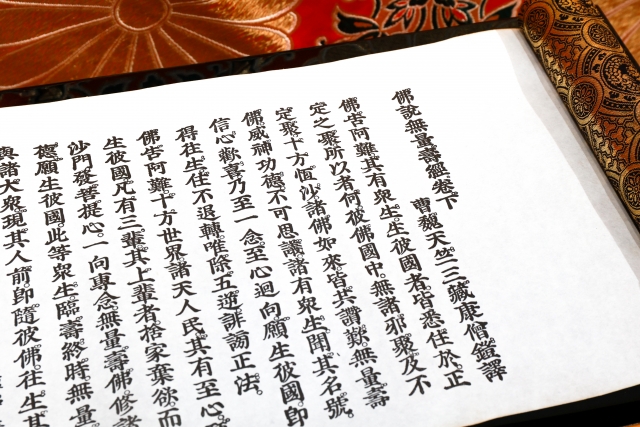 佛說無量壽經卷下　曹魏天竺三藏康僧鎧譯
佛告阿難其有衆生生彼國者皆悉住於正
定之聚所以者何彼佛國中無諸邪聚及不
定聚十方恆沙諸佛如來皆共讚歎無量壽
佛威神功德不可思議諸有衆生聞其名號
信心歡喜乃至一念至心迴向願生彼國卽
得往生住不退轉唯除五逆誹謗正法
佛告阿難十方世界諸天人民其有至心
生彼國凡有三輩其上輩者捨家棄欲而
沙門發菩提心一向專念無量壽佛修諸
德願生彼國此等衆生臨壽終時無量
與諸大衆現其人前卽隨彼佛往生其